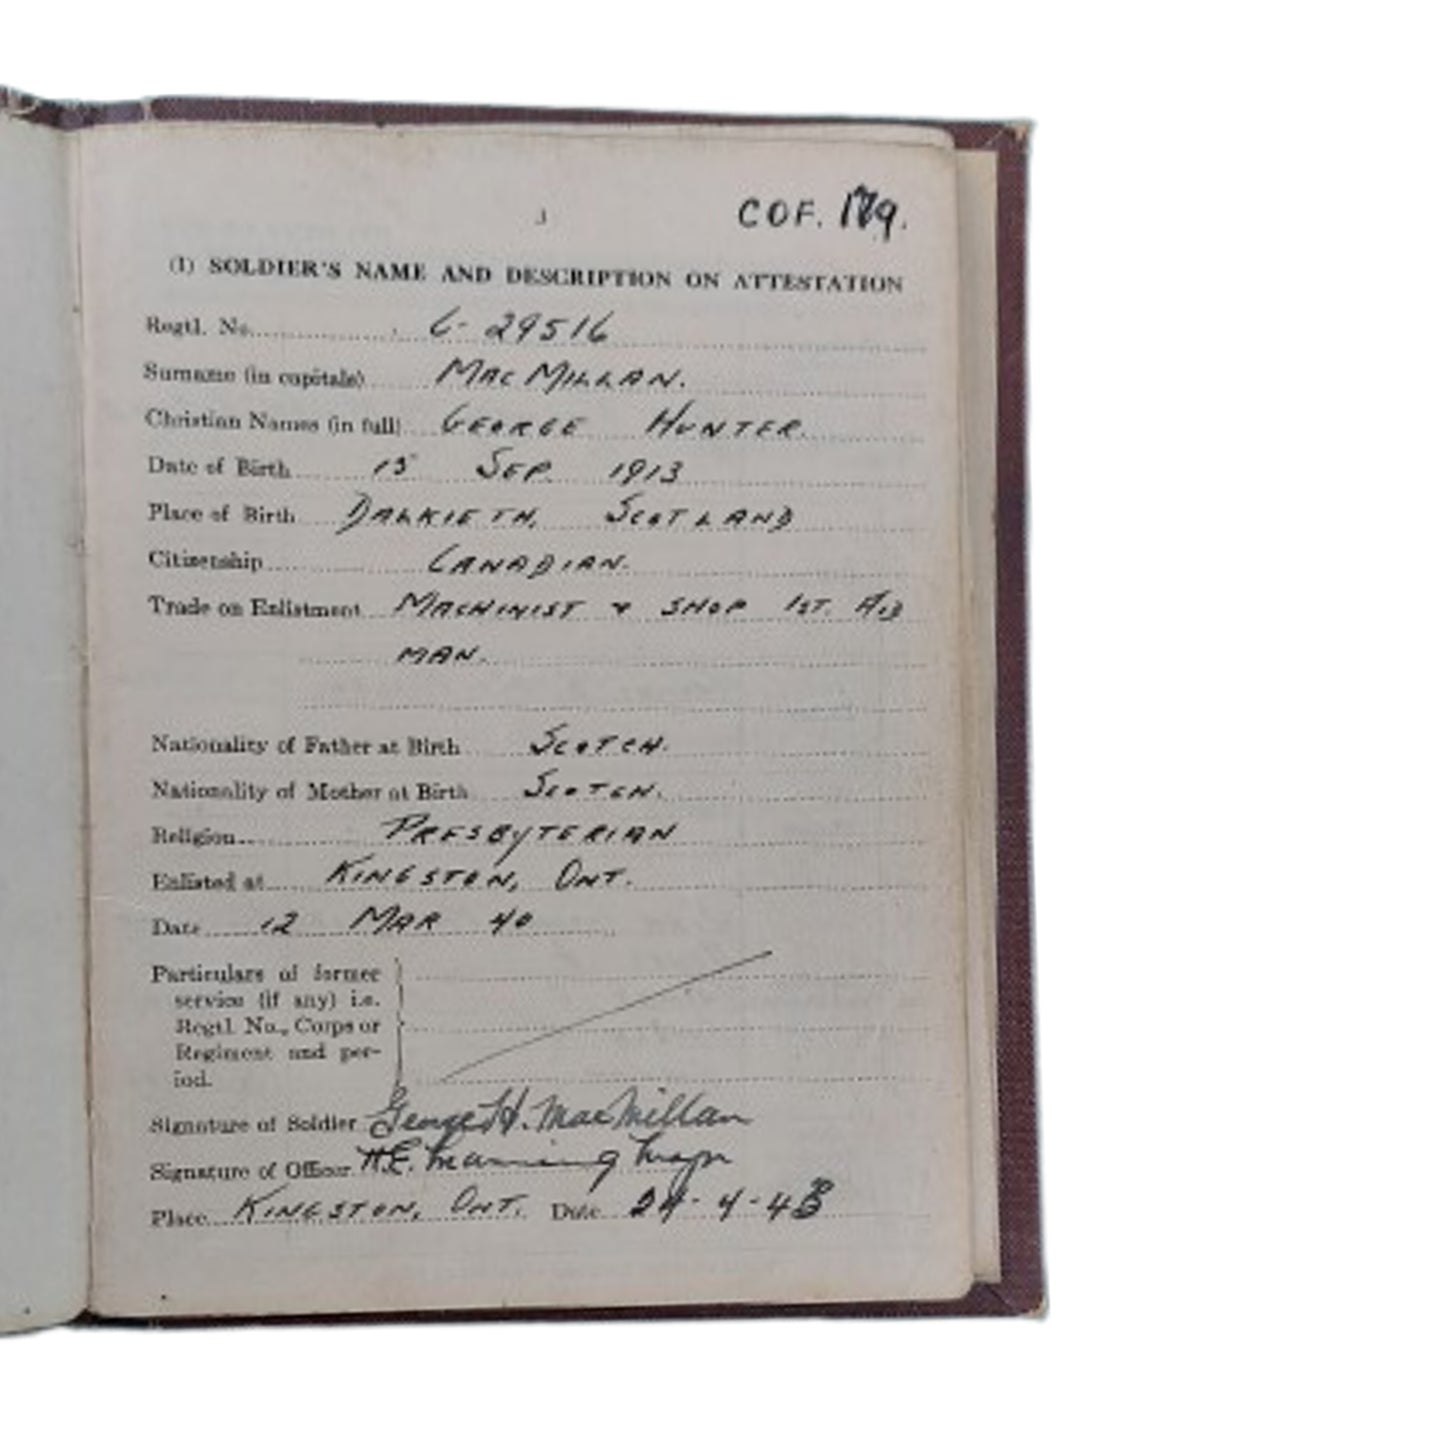 3
COF. 179.
(1) SOLDIER'S NAME AND DESCRIPTION ON ATTESTATION
Regtl. No. C-29516
Surname (in capitals) MACMILLAN.
Christian Names (in full) GEORGE HUNTER.
Date of Birth 15 SEP. 1913
Place of Birth DALKIETH, SCOTLAND
Citizenship CANADIAN.
Trade on Enlistment MACHINIST & SHOP 1ST. AID
MAN.
Nationality of Father at Birth SCOTCH.
Nationality of Mother at Birth SCOTCH.
Religion PRESBYTERIAN
Enlisted at KINGSTON, ONT.
Date 12 MAR 40
Particulars of former
service (if any) i.e.
Regtl. No., Corps or
Regiment and per-
iod.
Signature of Soldier George H. MacMillan
Signature of Officer H.E.
Place KINGSTON, ONT. Date 24-4-43